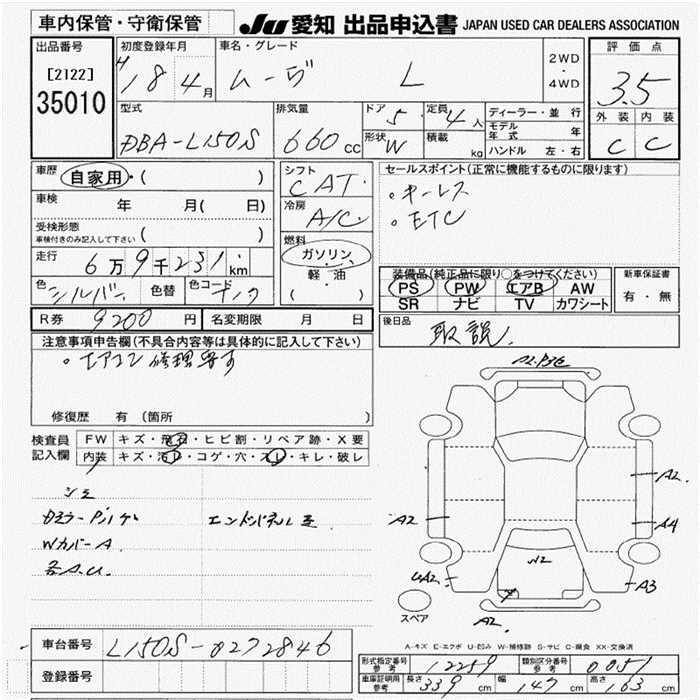 車内保管・守衛保管
JU 愛知 出品申込書 JAPAN USED CAR DEALERS ASSOCIATION
出品番号
[2122]
35010
初度登録年月
H 18 4月
車名・グレード
ムーヴ L
2WD・4WD
評価点
3.5
外装 内装
C C
型式
DBA-L150S
排気量
660cc
ドア 5
定員 4人
形状 W
積載 kg
ディーラー・並行
モデル年式 年
ハンドル 左・右
車歴 自家用・( )
車検 年 月( 日)
受検形態
車検付きのみ記入して下さい ( )
走行 6万9千231km
色 シルバー 色替 色コード
R券 9200円 名変期限 月 日
シフト
CAT
冷房
A/C
燃料
ガソリン・軽油
( )
セールスポイント(正常に機能するものに限ります)
・キーレス
・ETC
装備品(純正品に限り○をつけてください)
PS PW エアB AW
SR ナビ TV カワシート
新車保証書
有・無
後日品
取説
注意事項申告欄(不具合内容等は具体的に記入して下さい)
・エアコン修理要す
修復歴 有(箇所 )
検査員記入欄
FW キズ・飛石・ヒビ割・リペア跡・X要
内装 キズ・汚レ・コゲ・穴・スレ・キレ・破レ
シミ
Wカバー A
各A.U.
A2
A2
A4
A2
UA2
W2
A3
A2
スペア
A-キズ E-エクボ U-凹み W-補修跡 S-サビ C-腐食 XX-交換済
車台番号 L150S-0272846
登録番号
型式指定番号 参考 12259
類別区分番号 参考 0051
車庫証明用 参考 長さ 339cm 幅 147cm 高さ 163cm